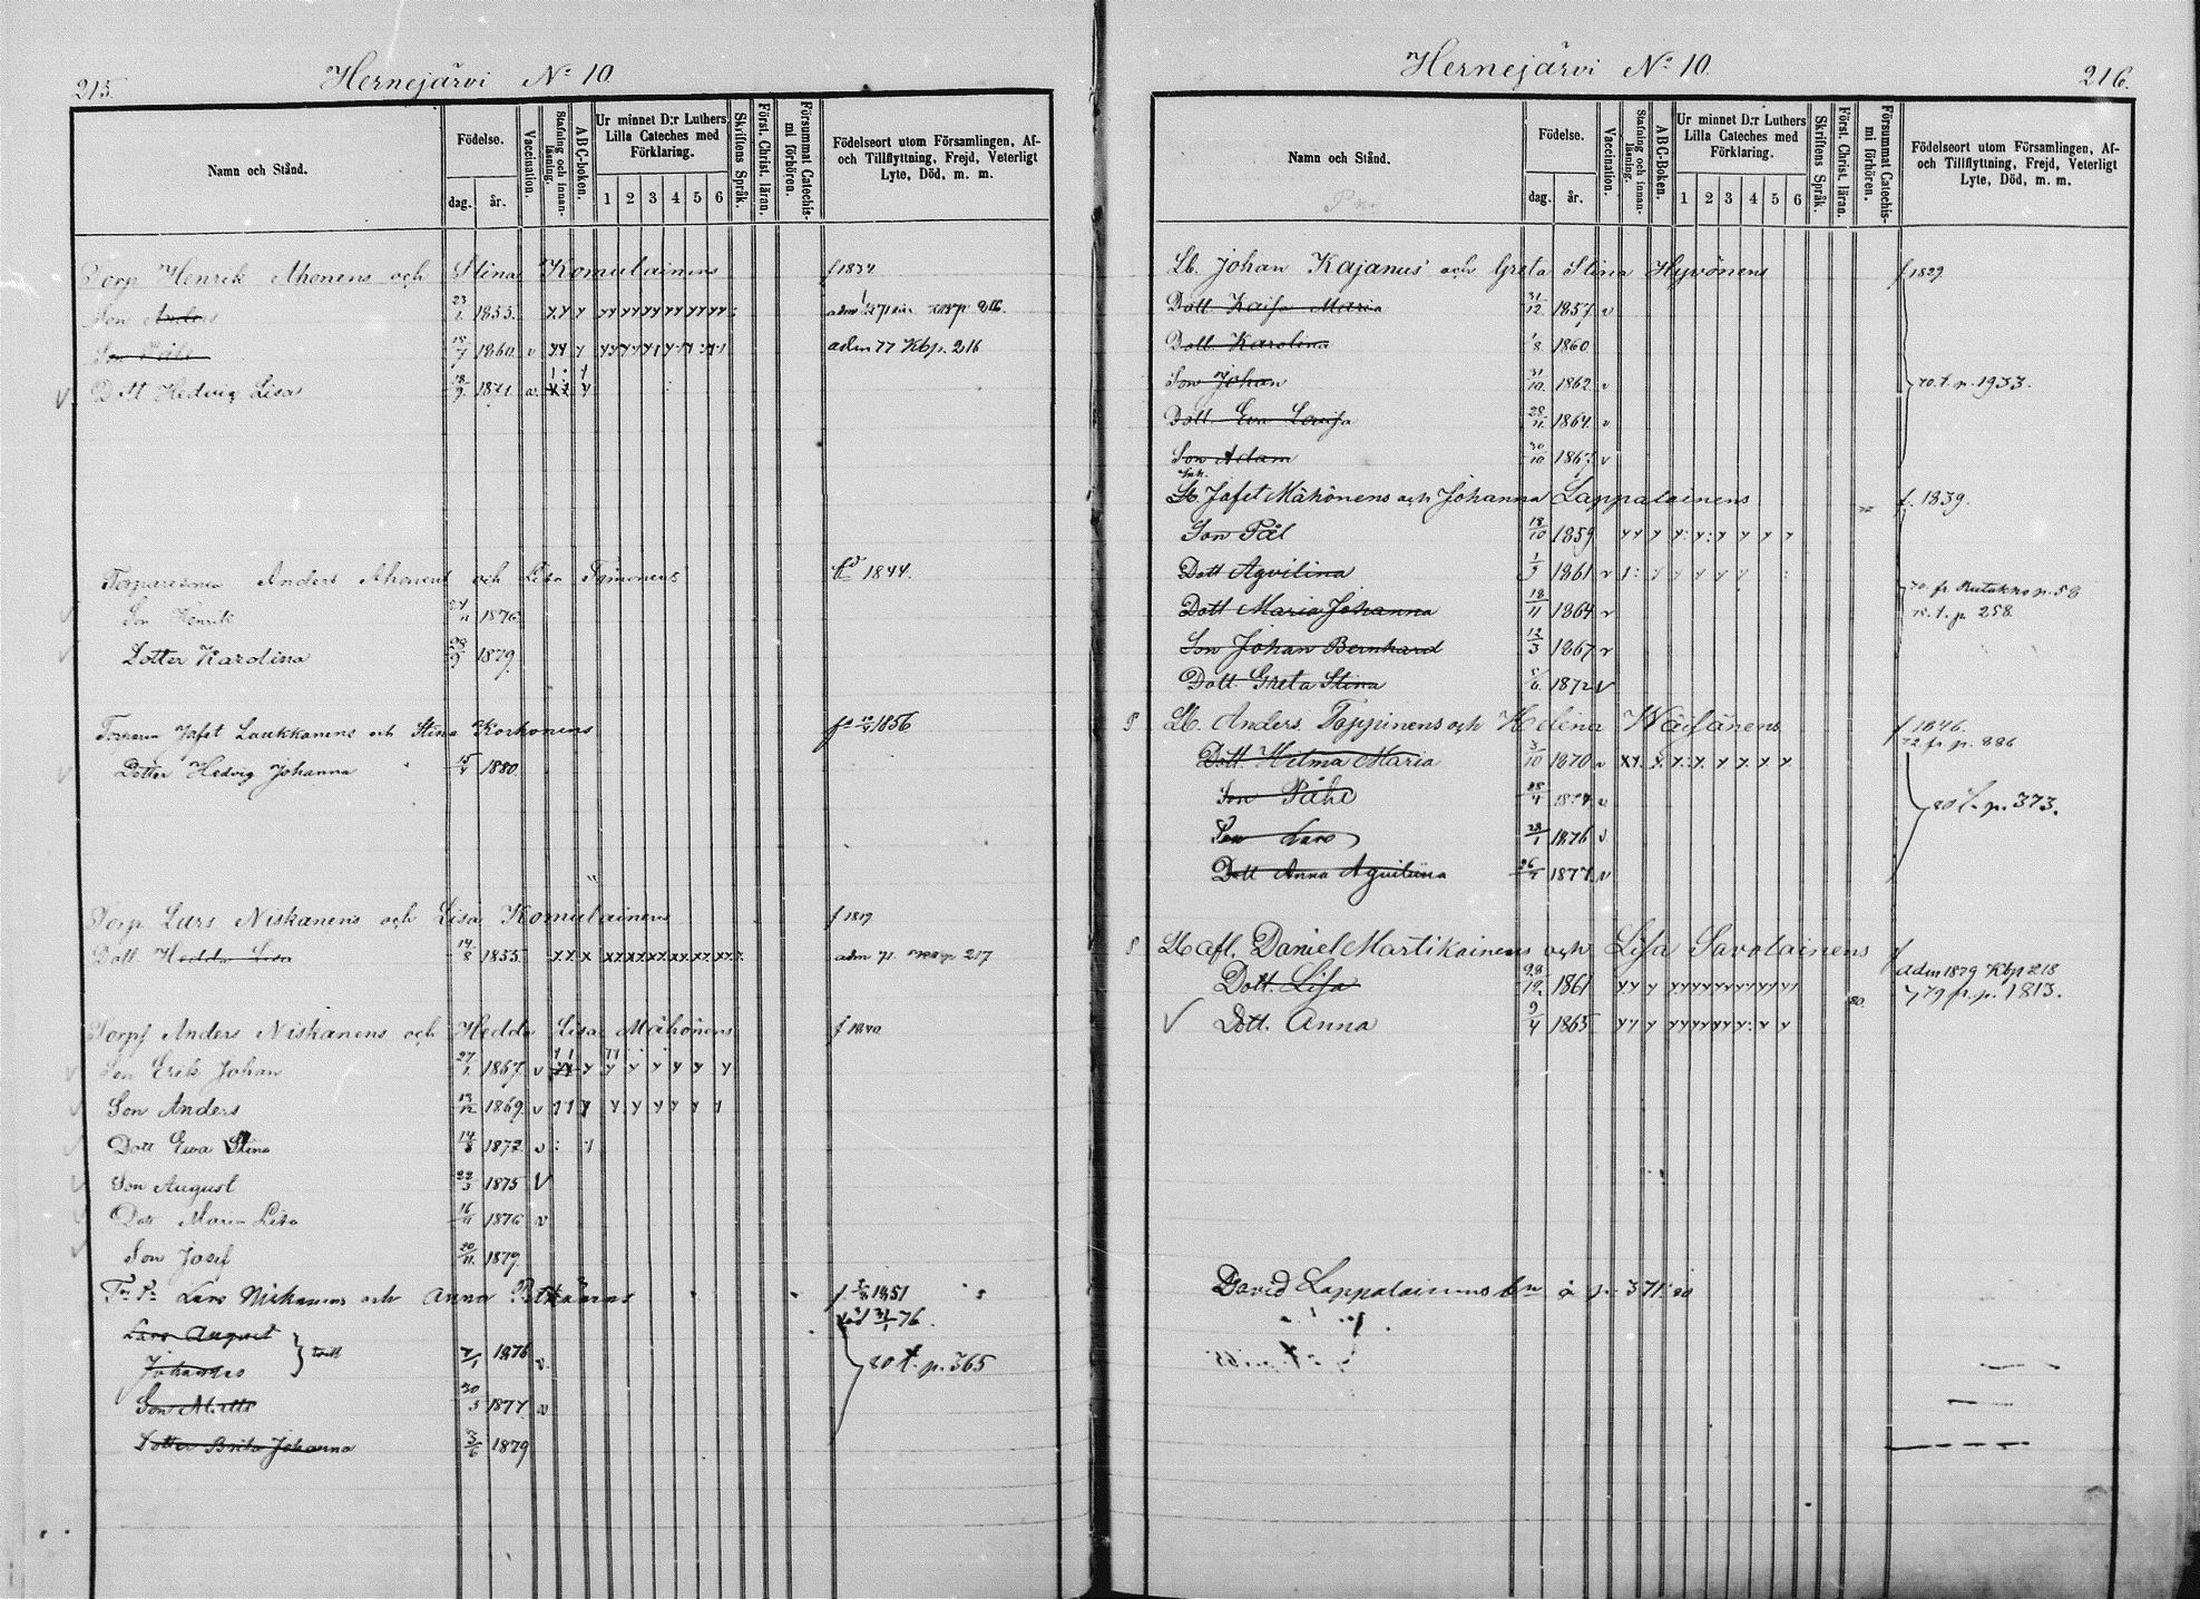 215.
Hernejärvi No 10.
Namn och Stånd.
Födelse.
dag. år.
Vaccination.
Stafning och innanläsning.
ABC-boken.
Ur minnet D:r Luthers Lilla Cateches med Förklaring.
1 2 3 4 5 6
Skriftens Språk.
Först. Christ. läran.
Försummat Catechismi förhören.
Födelseort utom Församlingen, Af- och Tillflyttning, Frejd, Veterligt Lyte, Död, m. m.
Torp Henrik Ahonens och Stina Komulainens f 1834
Son Anders 1855 216.
Son Påhl 1860 v adm 77 Kbp. 216
Dott Hedvig Lisa 18/9 1871 v
Torparesonen Anders Ahonens och Lisa Timonens 1844.
Son Henrik 1876
Dotter Karolina 1879
Jafet Laukkanens och Stina Korhonens 1856
Dotter Hedvig Johanna 1880
Torp Lars Niskanens och Lisa Komulainens f 1819
Dott Hedda Lisa 14/8 1855 adm 71 217
Torpf Anders Niskanens och Hedda Lisa Mähönens f 1840
Son Erik Johan 1867 v
Son Anders 13/12 1869 v
Dott Ewa Stina 14/8 1872 v
Son August 22/3 1875 v
Dott Maria Lisa 16/11 1876 v
Son Josef 20/11 1879
Lars Niskanens och Anna f 1851
Lars August 76.
Johannes 1876 v 80 t. p. 365
Son Matts 1877 v
Dotter Brita Johanna 3/6 1879
Hernejärvi No 10.
216.
Namn och Stånd.
Födelse.
dag. år.
Vaccination.
Stafning och innanläsning.
ABC-boken.
Ur minnet D:r Luthers Lilla Cateches med Förklaring.
1 2 3 4 5 6
Skriftens Språk.
Först. Christ. läran.
Försummat Catechismi förhören.
Födelseort utom Församlingen, Af- och Tillflyttning, Frejd, Veterligt Lyte, Död, m. m.
Lb. Johan Kajanus och Greta Stina Hyvönens f 1829
Dott Kaisa Maria 31/12 1857 v
Dott. Karolina 1/8 1860
Son Johan 31/10 1862 v 70. t. p. 1933.
Dott. Eva Lovisa 28/11 1864 v
Son Adam 30/10 1867 v
Lb. Jafet Mähönens och Johanna Lappalainens f. 1839.
Son Pål 18/10 1859
Dott Agvilina 1/9 1861 v p. 58
Dott Maria Johanna 18/11 1864 v t. p. 258
Son Johan Bernhard 13/3 1867 v
Dott. Greta Stina 5/6 1872 v
Lb. Anders Tappinens och Helena Wäisänens f 1846.
72 fr p. 886
Dott. Helma Maria 3/10 1870 v
Son Påhl 25/4 1874 v 80 t. p. 373.
Son Lars 28/1 1876 v
Dott Anna Aguilina 1877 v
Lb afl. Daniel Martikainens och Lisa Savolainens f
adm 1879 Kbp 218
Dott. Lisa 28/12 1861 79 fr. p. 1813.
Dott. Anna 9/4 1865
David Lappalainens å p. 371